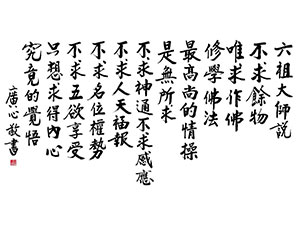 六祖大師説
不求餘物
唯求作佛
修學佛法
最高尚的情操
是無所求
不求神通不求感應
不求人天福報
不求名位權勢
不求五欲享受
只想求得內心
究竟的覺悟
廣心敬書